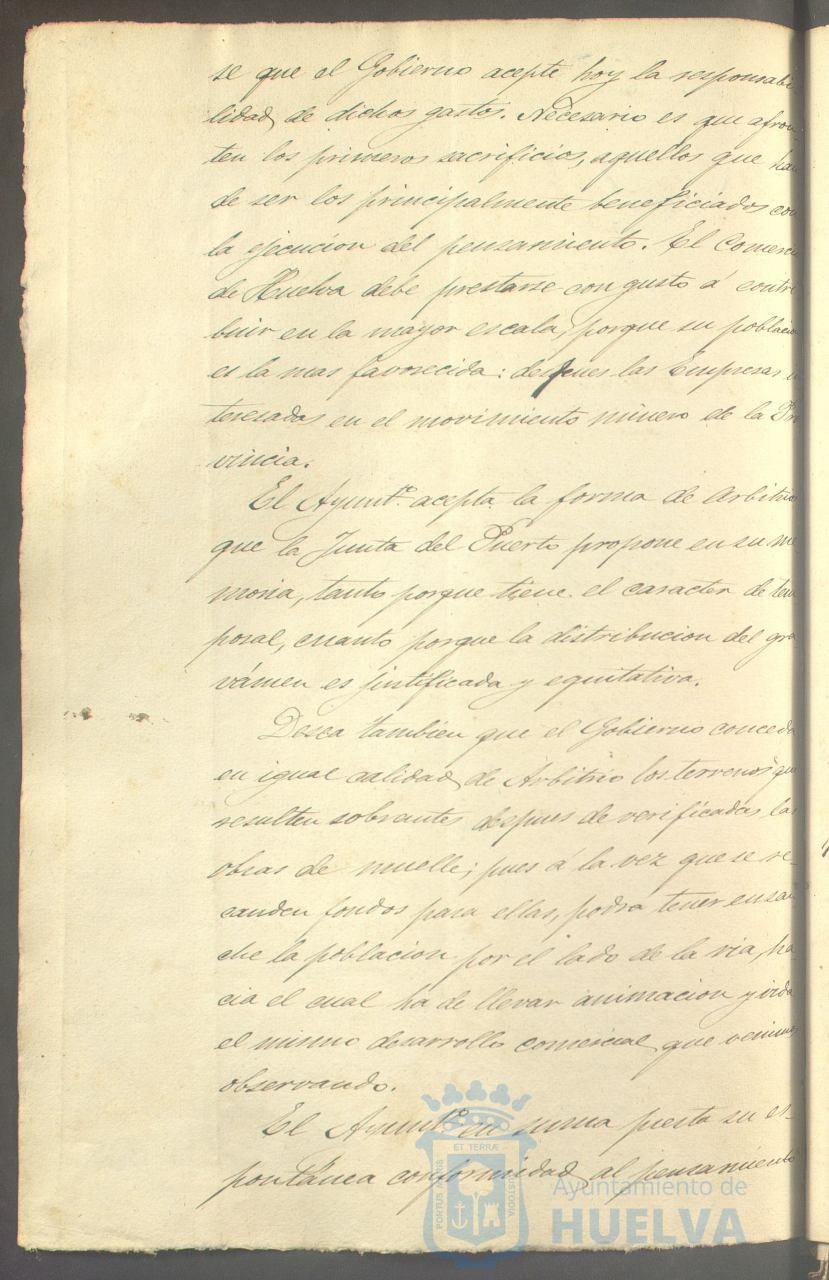 se que el Gobierno acepte hoy la responsabi
lidad de dichos gastos. Necesario es que afron
ten los primeros sacrificios, aquellos que han
de ser los principalmente beneficiados con
la ejecucion del pensamiento. El Comerci
de Huelva debe prestarse con gusto á contri
buir en la mayor escala, porque su poblacion
es la mas favorecida: despues las Empresas in
teresadas en el movimiento minero de la Pro
vincia.
El Ayunt.º acepta la forma de arbitrios
que la Junta del Puerto propone en su me
moria, tanto porque tiene el caracter de tem
poral, cuanto porque la distribucion del gra
vámen es justificada y equitativa.
Desea tambien que el Gobierno conceda
en igual calidad de Arbitrio los terrenos que
resulten sobrantes despues de verificadas las
obras de muelle; pues á la vez que se re-
cauden fondos para ellas, podra tener ensan
che la poblacion por el lado de la via, ha
cia el cual ha de llevar animacion y vida
el mismo desarrollo comercial que venimos
observando.
El Ayunt.º en suma presta su es-
pontánea conformidad al pensamiento
PORTUS MARIS ET TERRÆ CUSTODIA
Ayuntamiento de
HUELVA